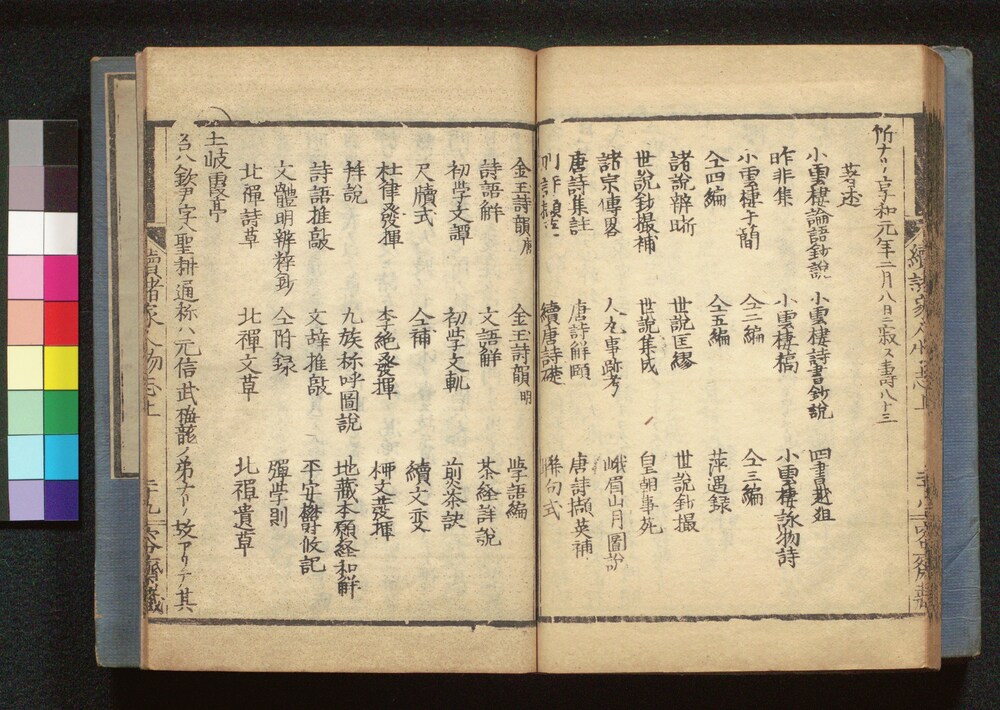 所ナリ享和元年二月八日ニ寂ス壽八十三
著述
小雲棲論語鈔說　小雲棲詩書鈔說　四書越狙
昨非集　小雲棲稿　小雲棲詠物詩
小雲棲手簡　仝二編　仝三編
仝四編　仝五編　萍遇録
諸說辨断　世說匡繆　世說鈔撮
世說鈔撮補　世說集成　皇朝事苑
諸宗傳畧　人丸事跡考　峨眉山月圖說
唐詩集註　唐詩解頤　唐詩擷英補
續唐詩礎　聯句式
金玉詩韻唐　金玉詩韻明　學語編
詩語解　文語解　茶経詳說
初学文譚　初学文軌　煎茶訣
尺牘式　仝補　續文変
杜律發揮　李絶發揮　柳文發揮
詳說　九族称呼圖說　地藏本願経和解
詩語推敲　文辞推敲　平安樹攸記
文體明辨粹鈔　仝附録　彈学則
北禪詩草　北禪文草　北禪遺草
土岐霞亭
名ハ欽尹字ハ聖耕通称ハ元信武梅龍ノ弟ナリ故アリテ其
續諸家人物志上　二十八
續諸家人物志上　二十九